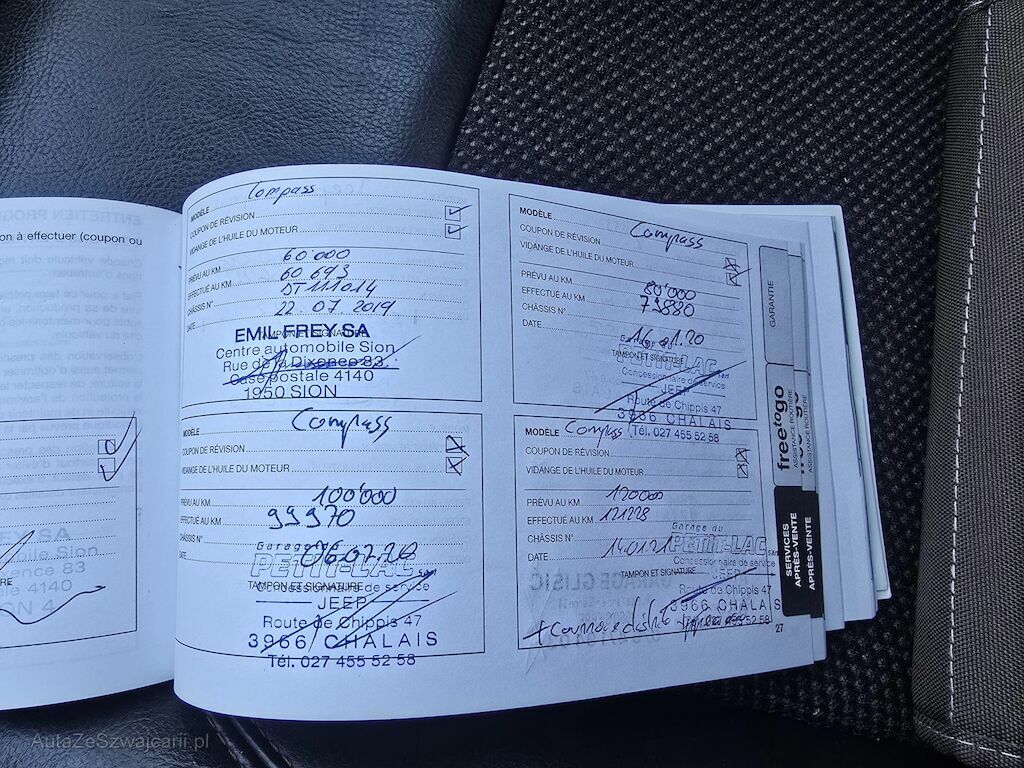 on à effectuer (coupon ou
SA
bile Sion
ence 83
ale 4140
ON 4
MODÈLE Compass
COUPON DE RÉVISION
VIDANGE DE L'HUILE DU MOTEUR
PRÉVU AU KM 60'000
EFFECTUÉ AU KM 60 693
CHÂSSIS N° DT 111014
DATE 22.07.2019
TAMPON ET SIGNATURE
EMIL FREY SA
Centre automobile Sion
Rue de la Dixence 83
Case postale 4140
1950 SION
MODÈLE Compass
COUPON DE RÉVISION
VIDANGE DE L'HUILE DU MOTEUR
PRÉVU AU KM 100'000
EFFECTUÉ AU KM 99970
CHÂSSIS N°
DATE 06.07.20
Garage du
PETIT-LAC
TAMPON ET SIGNATURE
Concessionnaire de service
JEEP
Route de Chippis 47
3966 CHALAIS
Tél. 027 455 52 58
MODÈLE Compass
COUPON DE RÉVISION
VIDANGE DE L'HUILE DU MOTEUR
PRÉVU AU KM 80'000
EFFECTUÉ AU KM 79880
CHÂSSIS N°
DATE 16.01.20
TAMPON ET SIGNATURE
PETIT-LAC
Concessionnaire de service
JEEP
Route de Chippis 47
3966 CHALAIS
Tél. 027 455 52 58
MODÈLE Compass
COUPON DE RÉVISION
VIDANGE DE L'HUILE DU MOTEUR
PRÉVU AU KM 120000
EFFECTUÉ AU KM 121228
CHÂSSIS N°
DATE 14.01.21
Garage du
PETIT-LAC
Concessionnaire de service
TAMPON ET SIGNATURE
JEEP
3966 CHALAIS
+ Courroie
27
GARANTIE
freetogo
ASSISTANCE ROUTIÈRE
ASSISTANCE ROUTIÈRE
SERVICES
APRÈS-VENTE
APRÈS-VENTE
AutaZeSzwajcarii.pl